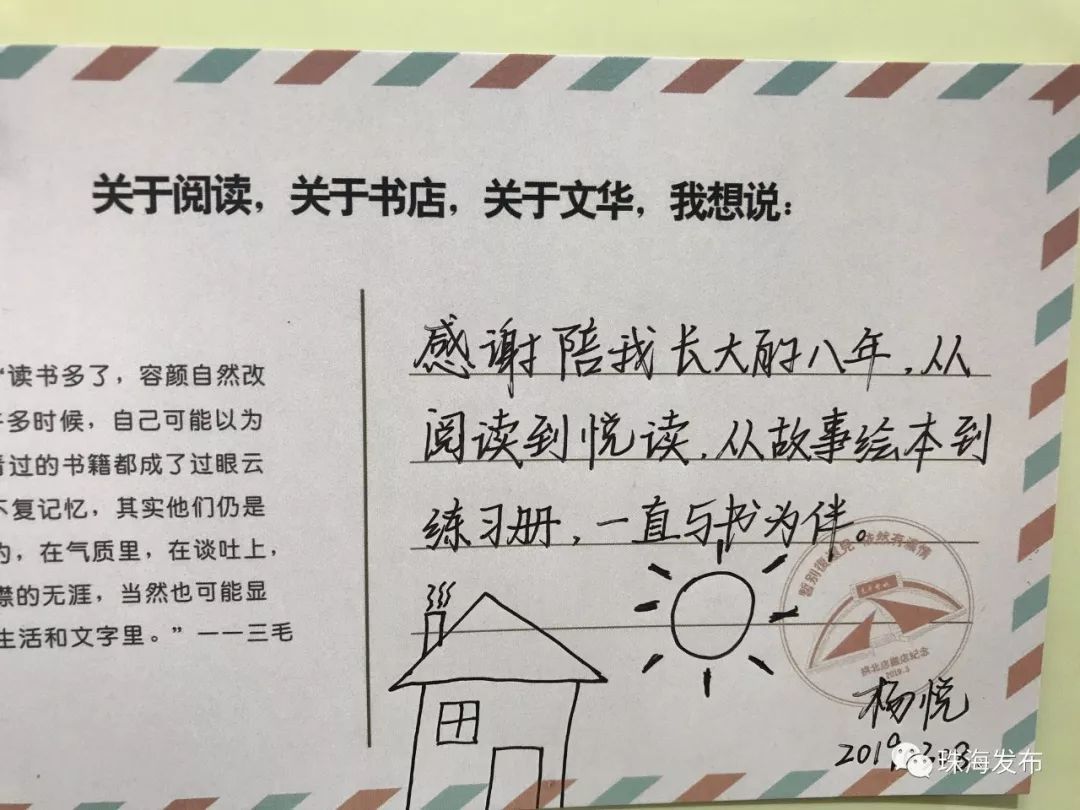 关于阅读，关于书店，关于文华，我想说：
“读书多了，容颜自然改
多时候，自己可能以为
看过的书籍都成了过眼云
不复记忆，其实他们仍是
，在气质里，在谈吐上，
襟的无涯，当然也可能显
生活和文字里。”——三毛
感谢陪我长大的八年，从
阅读到悦读，从故事绘本到
练习册，一直与书为伴。
暂别復遇見 依然有温情
拱北店撤店纪念
2019.3
杨悦
2019.3.
珠海发布